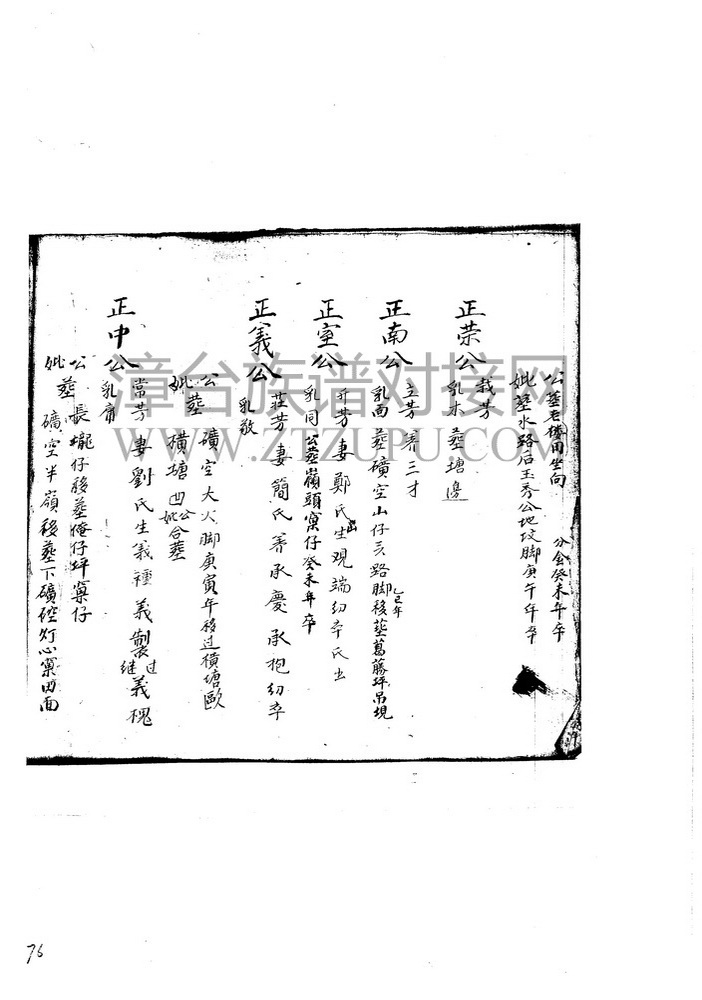 公葬老樓用坐向 分金癸未年卒
妣葬水路后玉秀公地坟脚庚午年卒
正荣公 栽芳
乳木葬塘邊
正南公 立芳 养三才
乳南葬礦空山仔六路脚移葬葛藤坪吊規
乙巳年
正室公 开芳妻鄭氏生观端幼卒氏出
乳同公葬嶺頭窠仔癸未年卒
正義公 荘芳妻簡氏养承慶承抱幼卒
乳敬
公葬礦空大火脚庚寅年移过橫塘歐
妣葬橫塘凹公妣合葬
正中公 常芳妻劉氏生義種義製過継義槐
乳庸
公葬長壠仔移葬俺仔坪窠仔
妣葬礦空半嶺移葬下礦硿灯心窠田面
漳台族谱对接网
WWW.ZTZUPU.COM
76